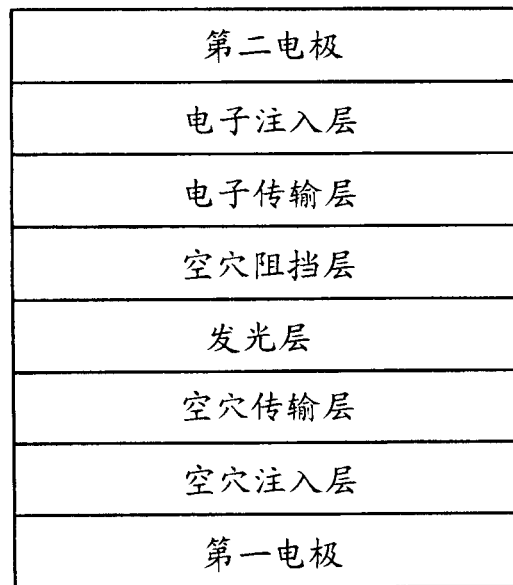 第二电极
电子注入层
电子传输层
空穴阻挡层
发光层
空穴传输层
空穴注入层
第一电极